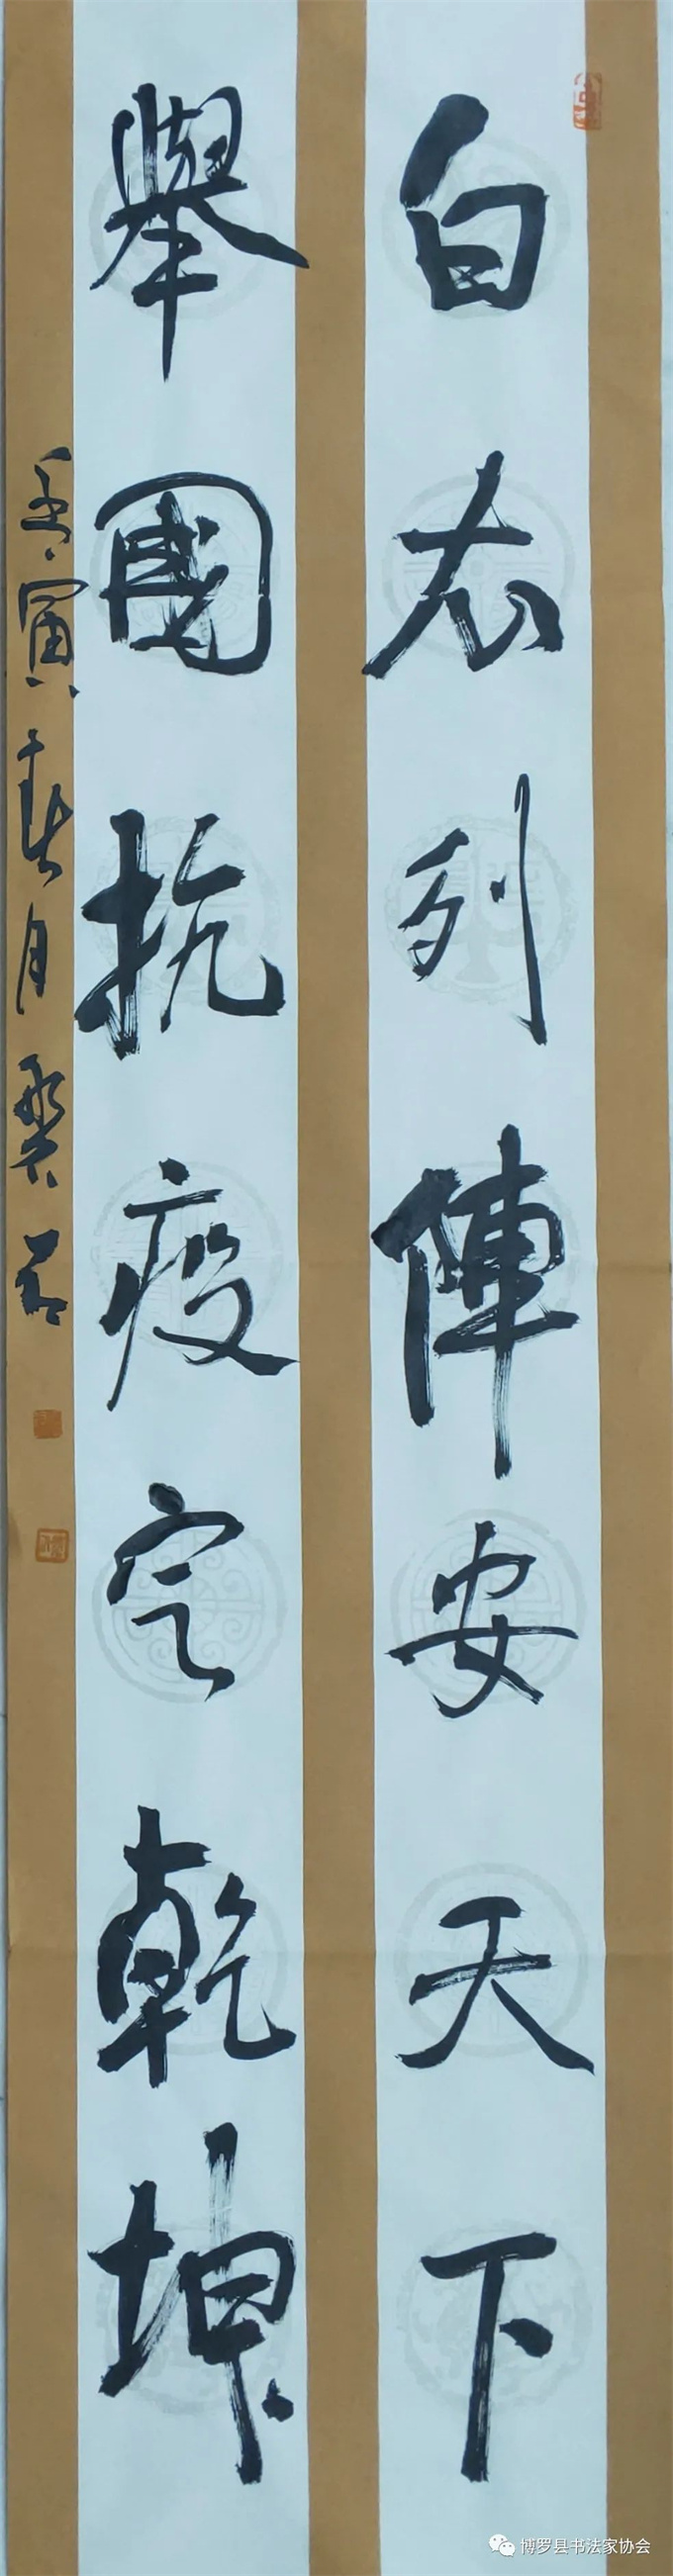 白衣列陣安天下
舉國抗疫定乾坤
壬寅春月
博罗县书法家协会